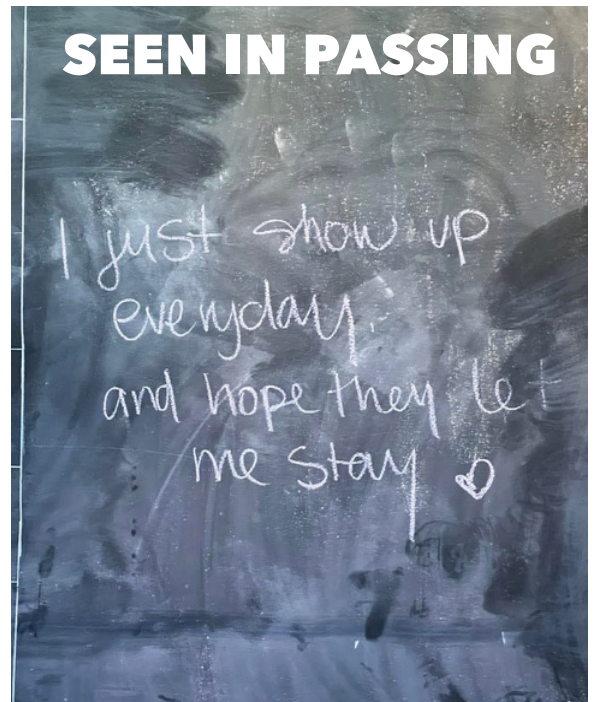 SEEN IN PASSING
I just show up
everyday
and hope they let
me stay